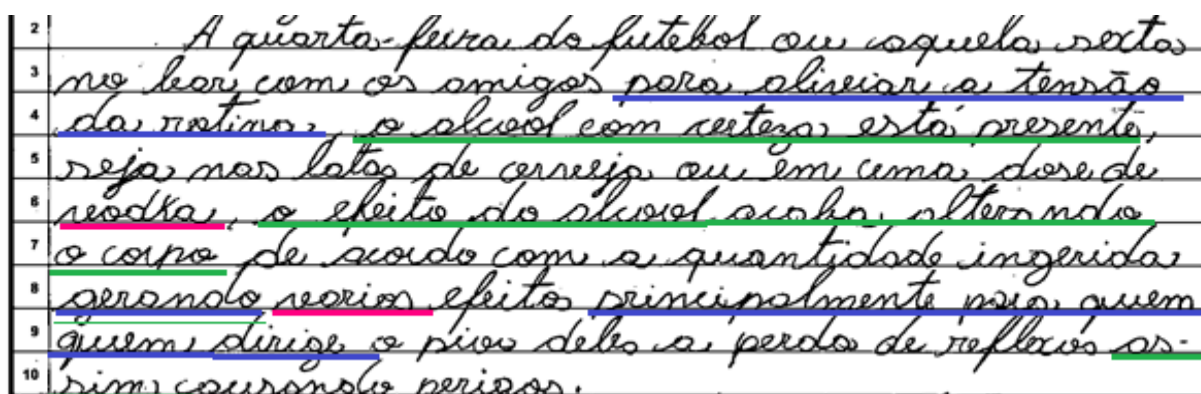 2 A quarta-feira do futebol ou aquela sexta
3 no bar com os amigos para aliviar a tensão
4 da rotina, o alcool com certeza está presente,
5 seja nas latas de cerveja ou em uma dose de
6 vodka, o efeito do alcool acaba alterando
7 o corpo de acordo com a quantidade ingerida
8 gerando varios efeitos principalmente para quem
9 quem dirige o pior deles a perda de reflexos as-
10 sim causando perigos.